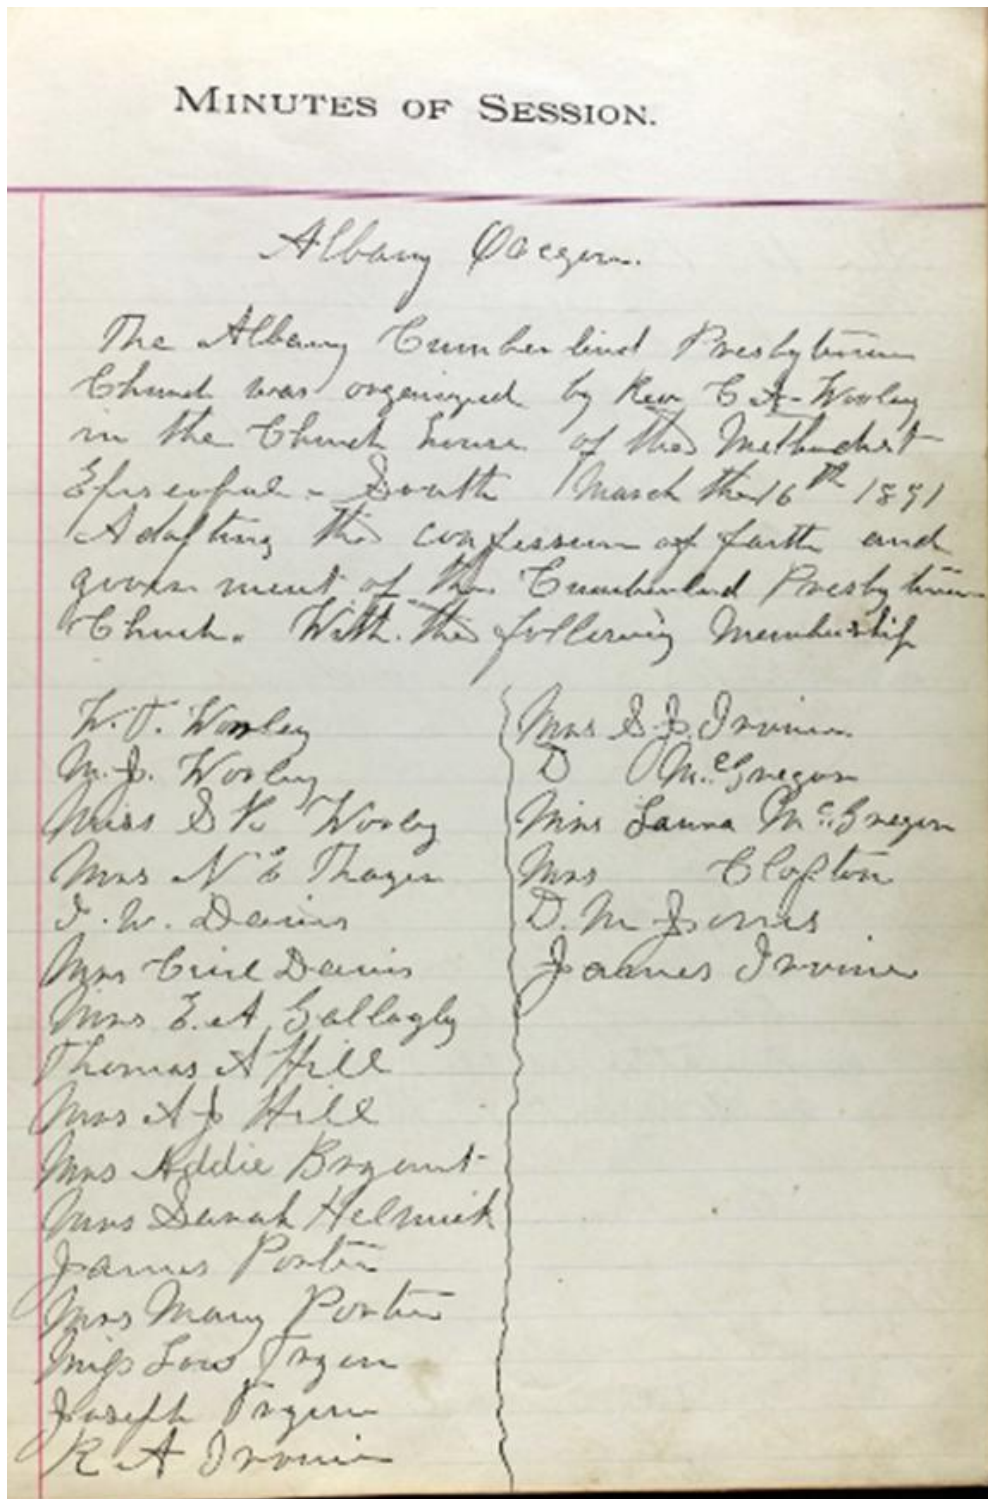 MINUTES OF SESSION.
Albany Oregon.
The Albany Cumberland Presbyterian
Church was organized by Rev C A Wooley
in the Church house of the Methodist
Episcopal - South March the 16th 1891
Adopting the confession of faith and
government of the Cumberland Presbyterian
Church. With the following Membership
W. T. Wooley
M. J. Wooley
Miss S V Wooley
Mrs N E Thayer
I. W. Davis
Mrs Davis
Mrs E. A Gallagly
Thomas A Hill
Mrs A J Hill
Mrs Addie Bryant
Mrs Sarah Helmick
James Porter
Mrs Mary Porter
Miss Lou Tryon
Joseph Tryon
R A Irvine
Mrs S. J. Irvine
D McGregor
Mrs Laura McGregor
Mrs Clopton
D. M Jones
James Irvine